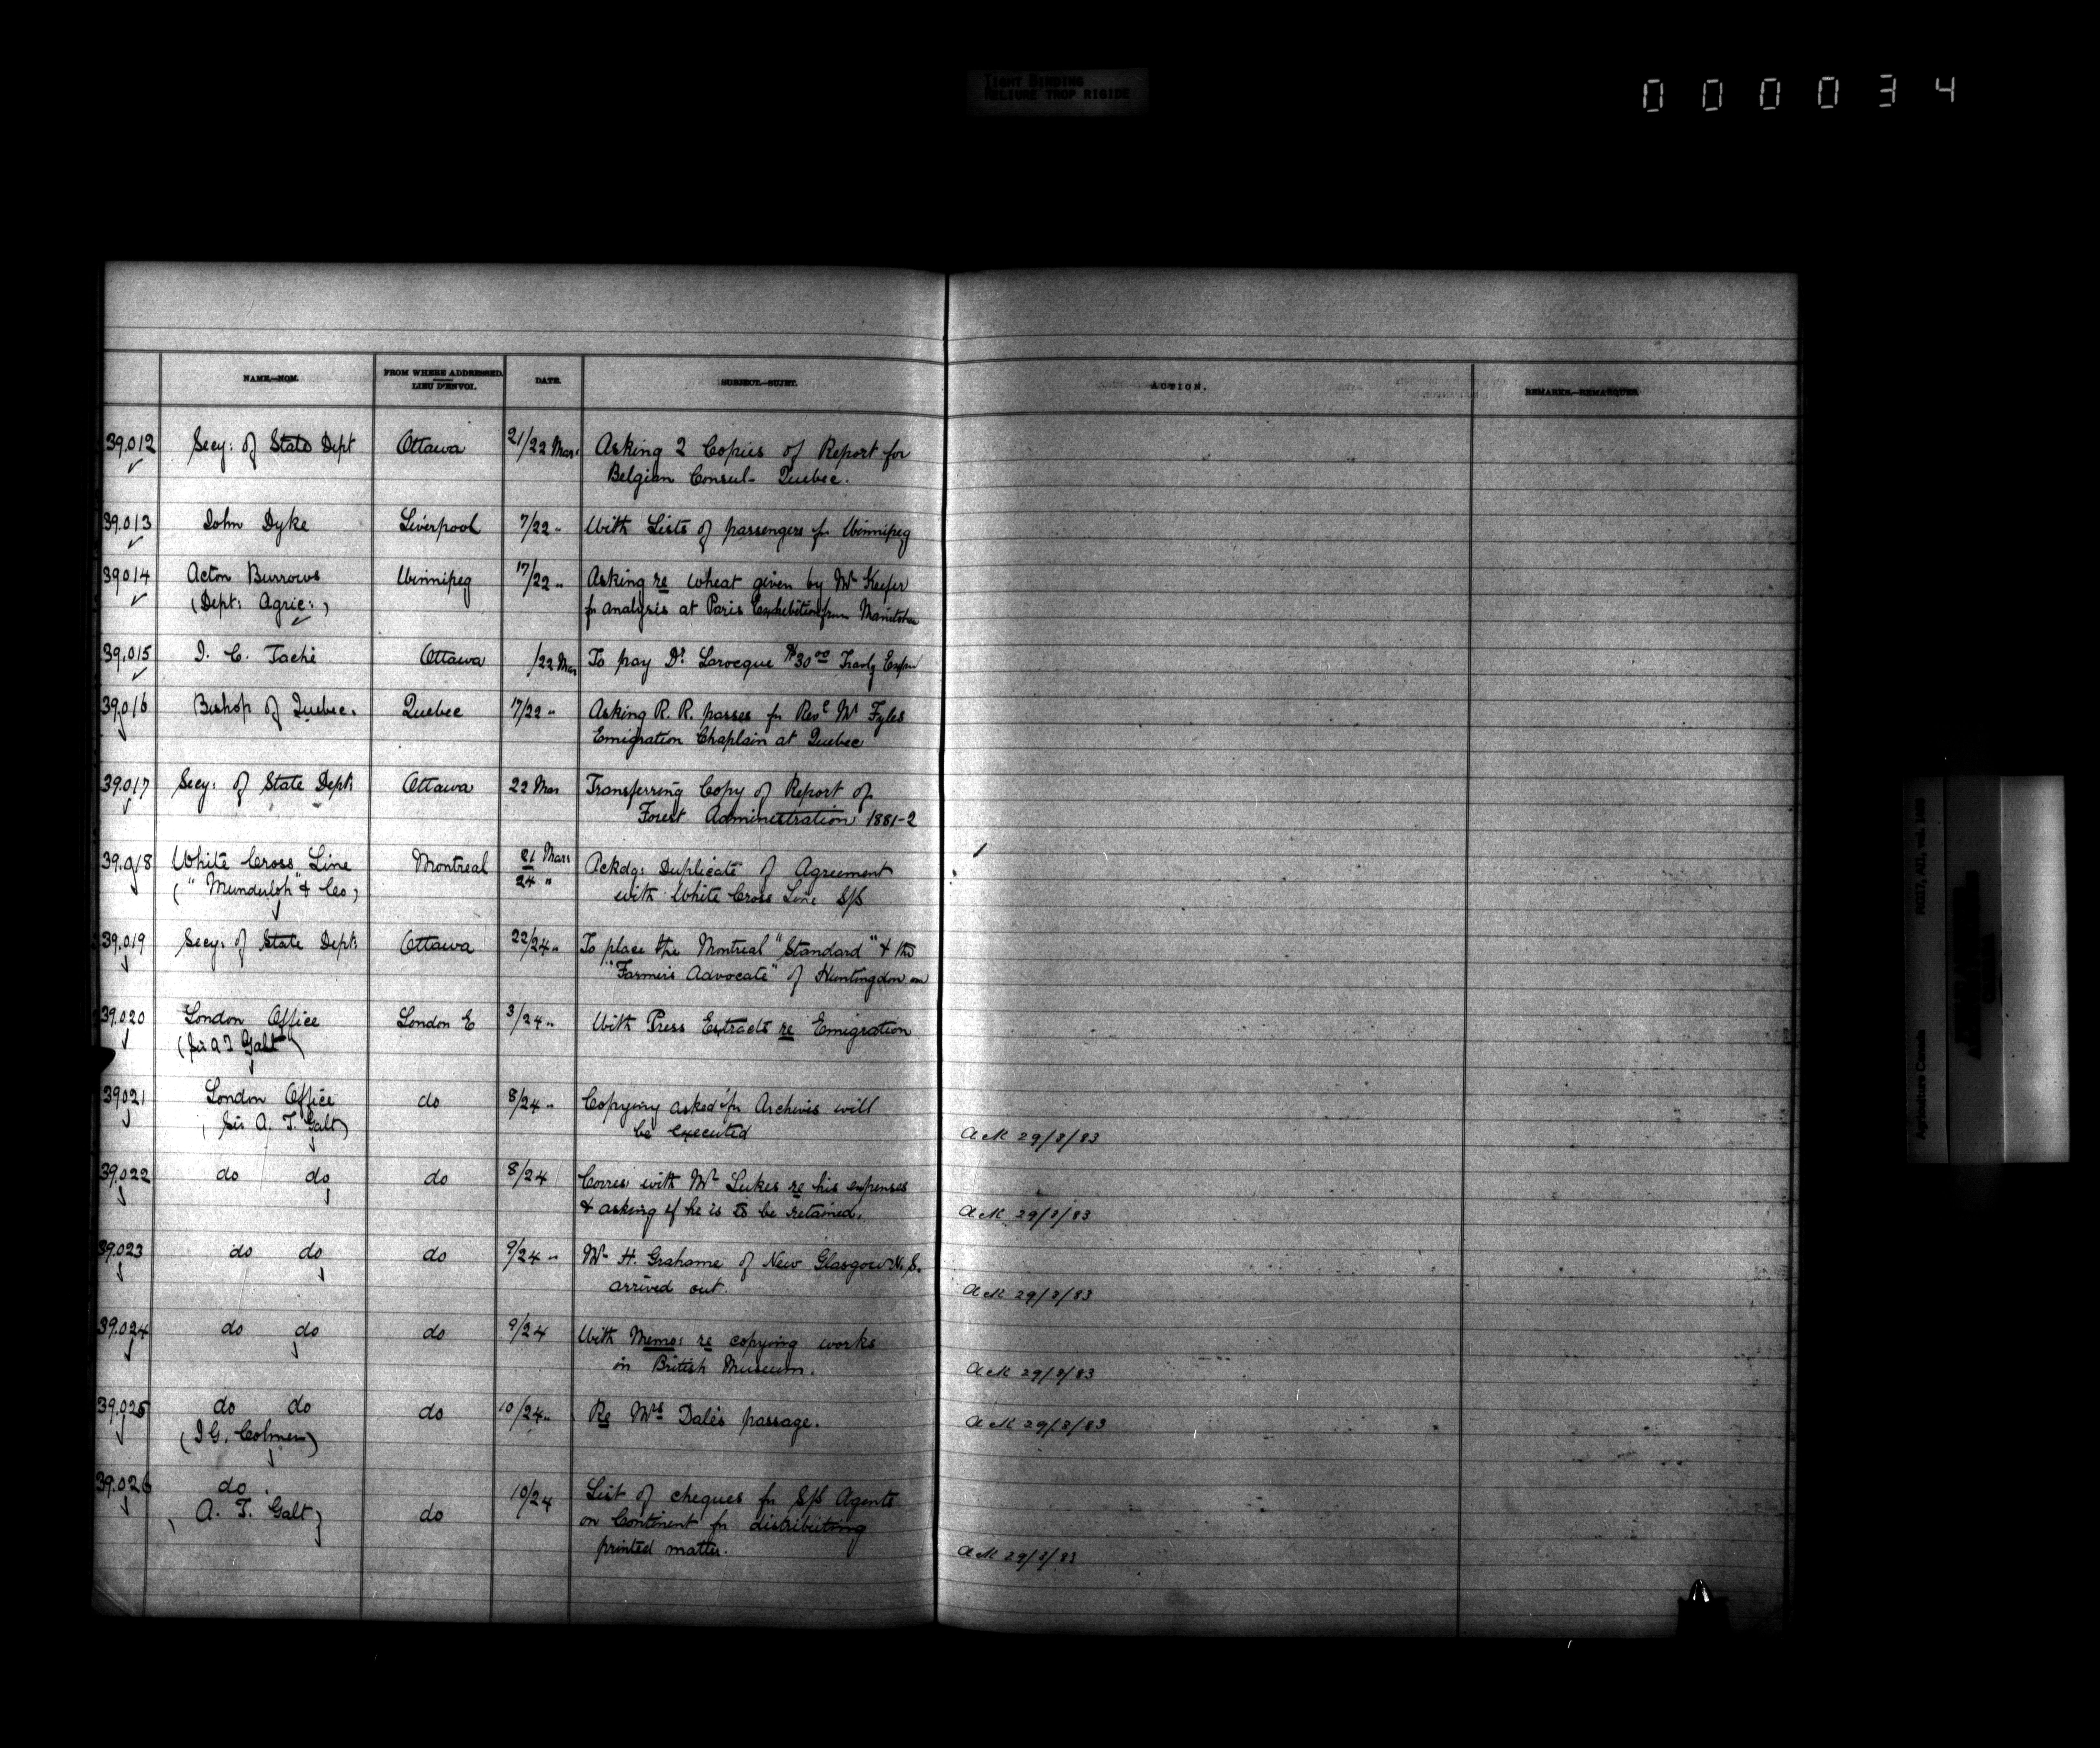 TIGHT BINDING
RELIURE TROP RIGIDE
000034
NAME.—NOM.
FROM WHERE ADDRESSED.
LIEU D'ENVOI.
DATE.
SUBJECT.—SUJET.
ACTION.
REMARKS.—REMARQUES
39.012 Secy: of State Dept Ottawa 21/22 Mar. Asking 2 Copies of Report for
Belgian Consul- Quebec.
39.013 John Dyke Liverpool 7/22 " With Lists of passengers fr Winnipeg
39014 Acton Burrows Winnipeg 17/22 " Asking re wheat given by Mr Keefer
(Dept: Agric:) fr analysis at Paris Exhibition from Manitoba
39.015 J. C. Taché Ottawa /22 Mar To pay Dr. Larocque $30.00 Travlg Expen
39.016 Bishop of Quebec. Quebec 17/22 " Asking R. R. passes fr Revd Mr Fyles
Emigration Chaplain at Quebec
39.017 Secy: of State Dept: Ottawa 22 Mar Transferring Copy of Report of
Forest Administration 1881-2
39.018 White Cross Line Montreal 21 Mar Ackdg: Duplicate of Agreement
24 " with White Cross Line S/S
39.019 Secy: of State Dept: Ottawa 22/24 " To place the Montreal "Standard" & the
"Farmer's Advocate" of Huntingdon on
39.020 London Office London E 3/24 " With Press Extracts re Emigration
(Sir A T Galt)
39021 London Office do 8/24 " Copying asked fr Archives will
(Sir A. T. Galt) be executed Ack 29/3/83
39.022 do do do 8/24 Corres with Mr Lukes re his expenses
& asking if he is to be retained. Ack 29/3/83
39.023 do do do 9/24 " Mr H. Grahame of New Glasgow N.S.
arrived out. Ack 29/3/83
39.024 do do do 9/24 With Memo: re copying works
in British Museum. Ack 29/3/83
39.025 do do do 10/24 " Re Mrs Dale's passage. Ack 29/3/83
(J G. Colmer)
39.026 do 10/24 List of cheques fr S/S Agents
A. T. Galt) do on Continent fr distributing
printed matter. Ack 29/3/83
Agriculture Canada RG17, AII, vol.